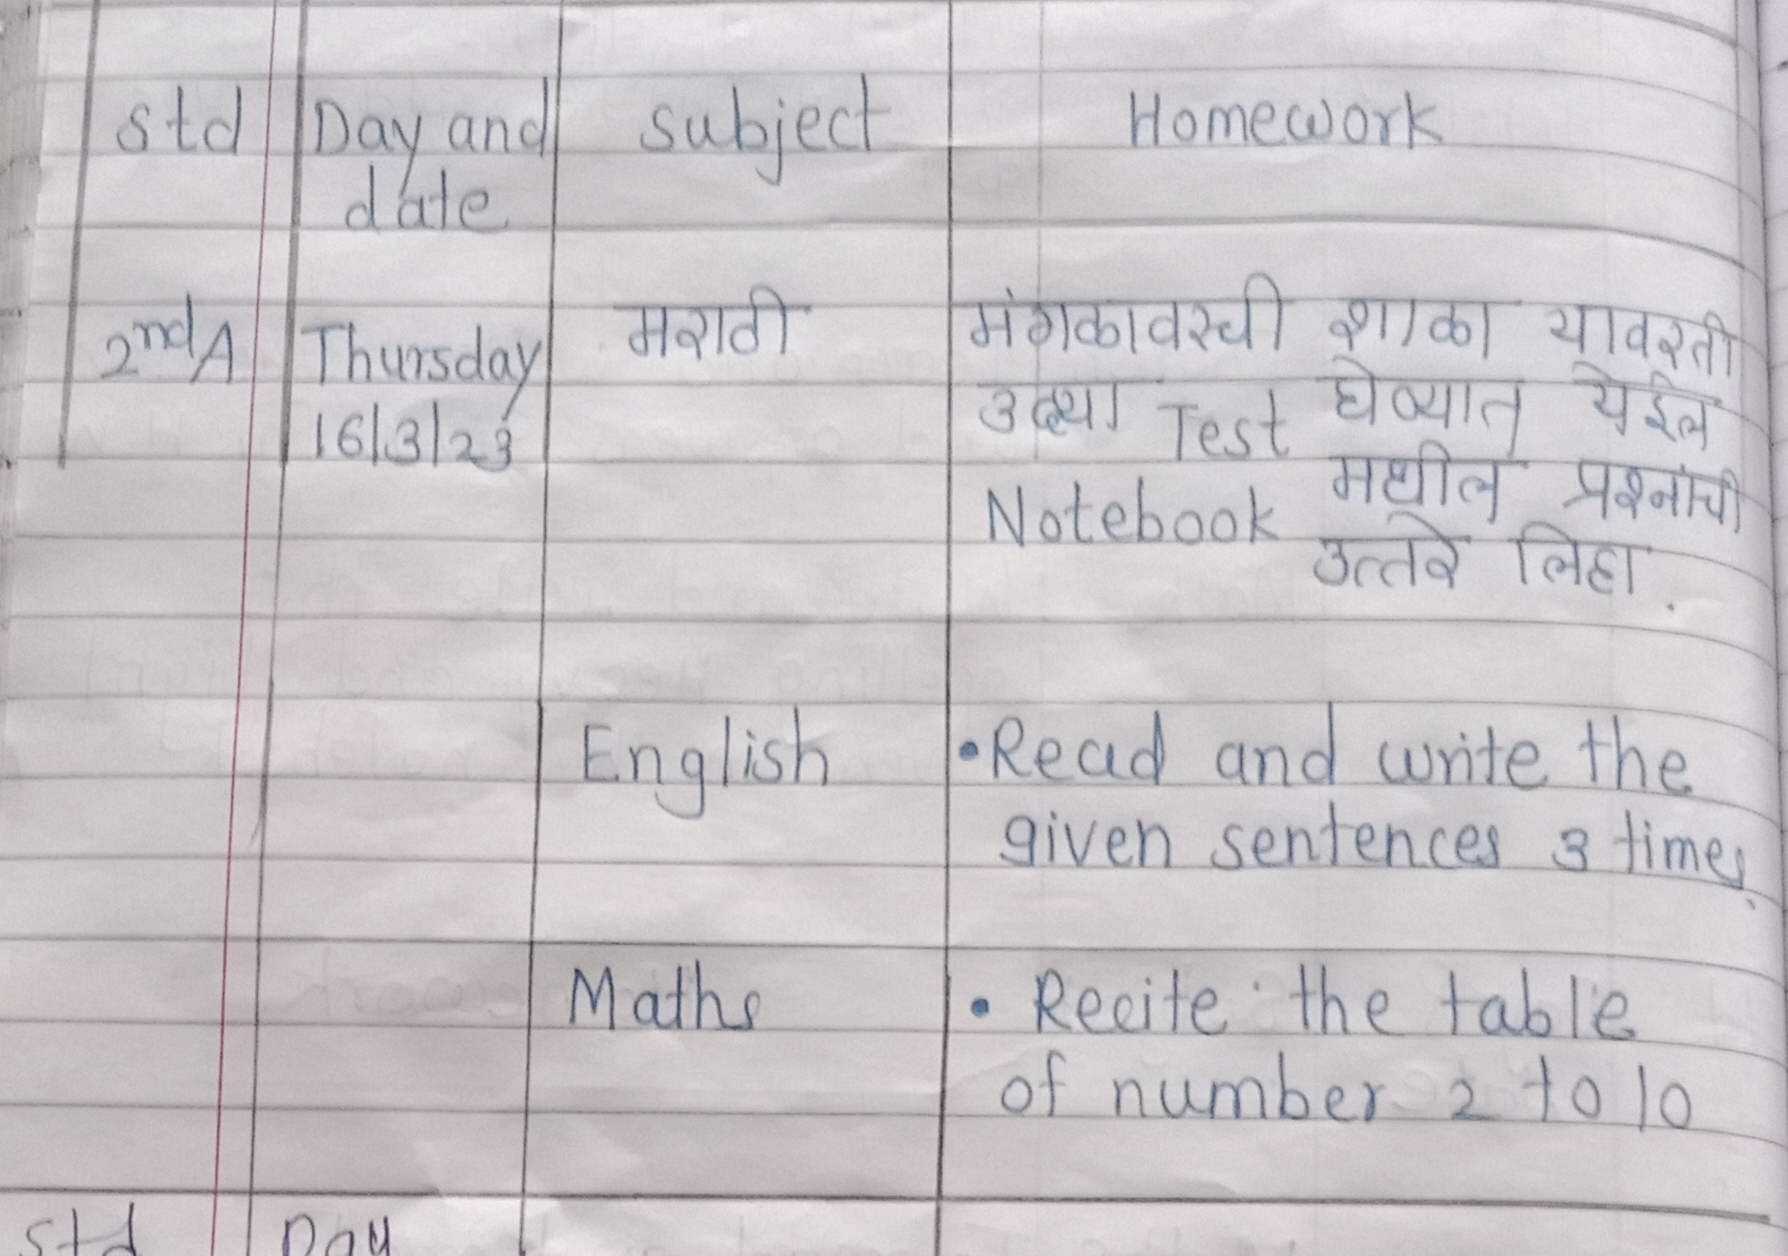 std Day and subject Homework
date
2nd A Thursday मराठी मंगळावरची शाळा यावरती
16/3/23 उद्या Test घेण्यात येईल
Notebook मधील प्रश्नांची
उत्तरे लिहा.
English • Read and write the
given sentences 3 times.
Maths • Recite the table
of number 2 to 10
std Day